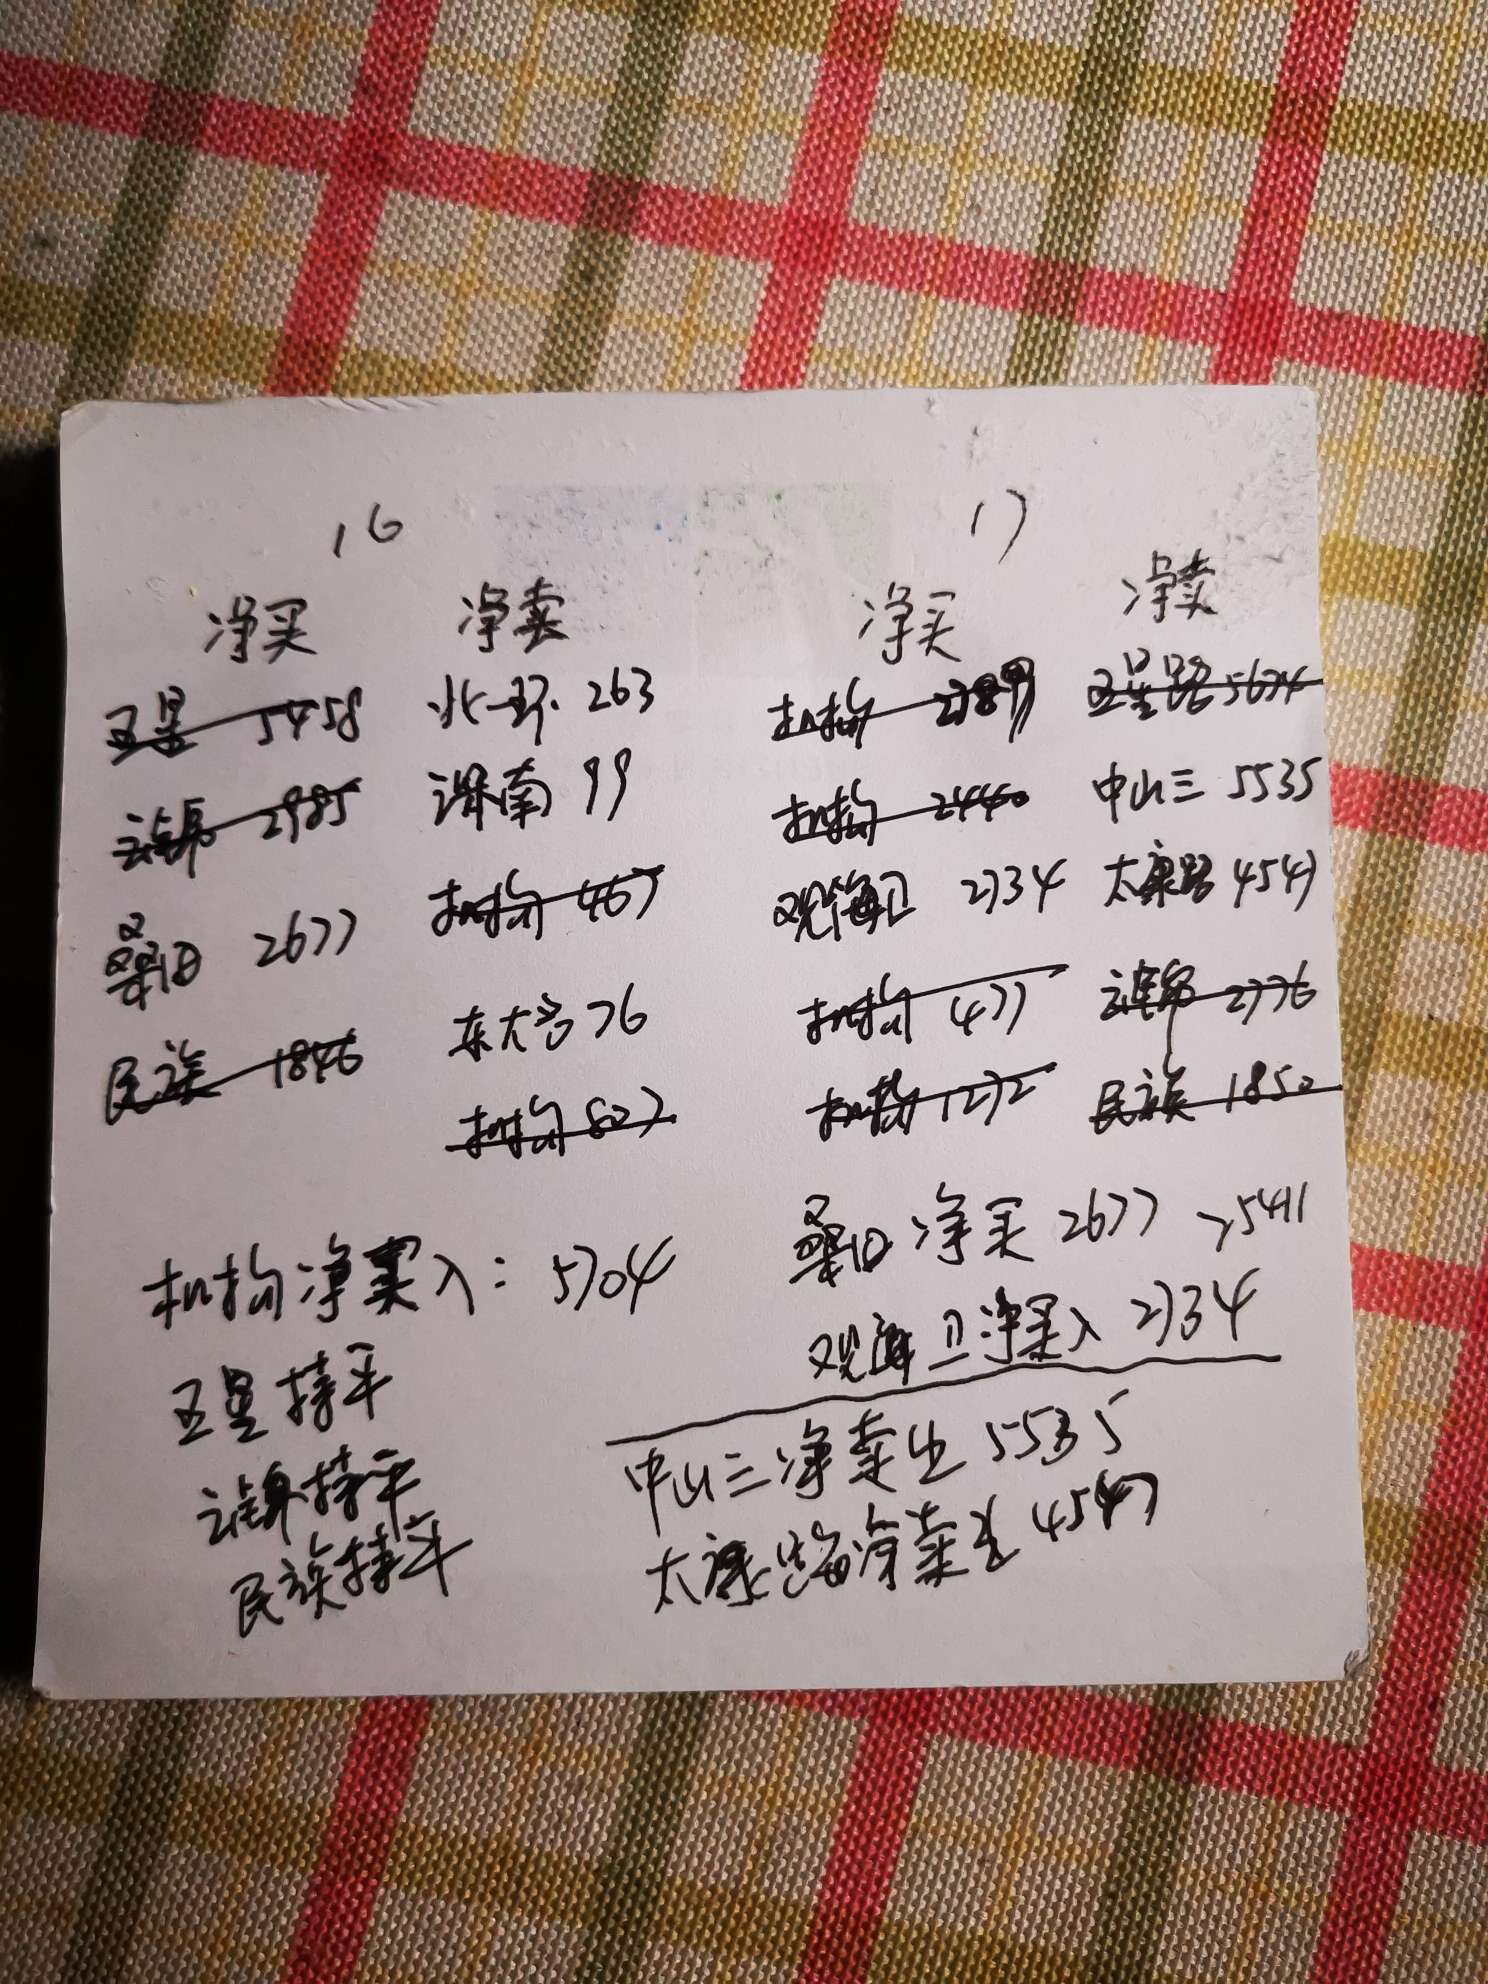 16 17
净买 净卖 净买 净卖
五星 5458 北环 263 机构 2789 五星路 5674
2985 湖南 99 机构 2440 中山三 5535
桑田 2677 机构 467 观海卫 2734 太康路 4547
民族 1846 东大名 76 机构 477 2776
机构 802 机构 1272 民族 1850
桑田 净买 2677 >5411
机构净买入：5704
观海卫净买入 2734
五星持平
中山三净卖出 5535
持平
太康路净卖出 4547
民族持平